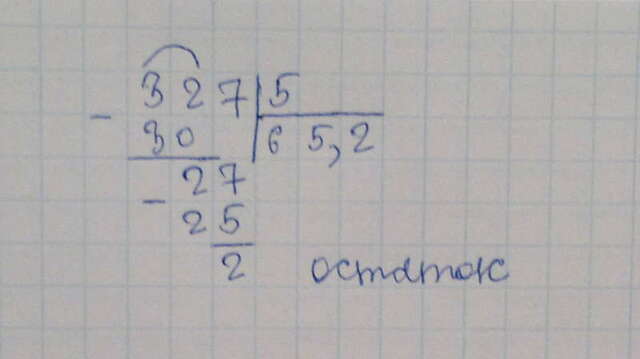 - 327 | 5
30 | 65,2
- 27
25
2 остаток